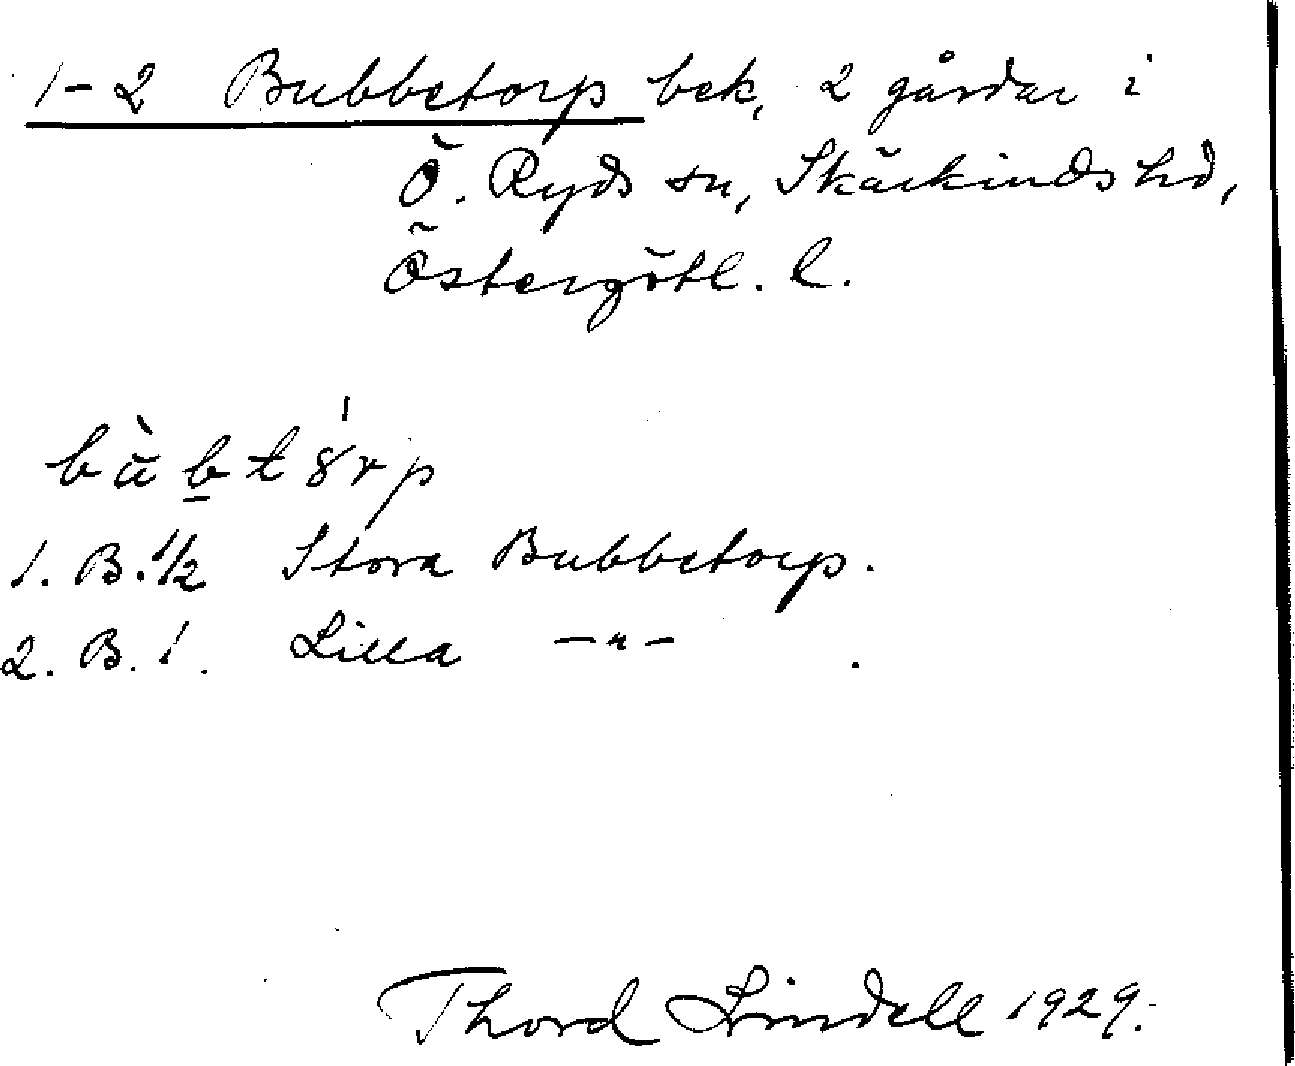 1-2 Bubbetorp bek, 2 gårdar i
Ö. Ryds sn, Skärkinds hd,
Östergötl. l.
bùb̲t8́rp
1. B. 1/2 Stora Bubbetorp.
2. B. 1. Lilla -"- .
Thord Lindell 1929.